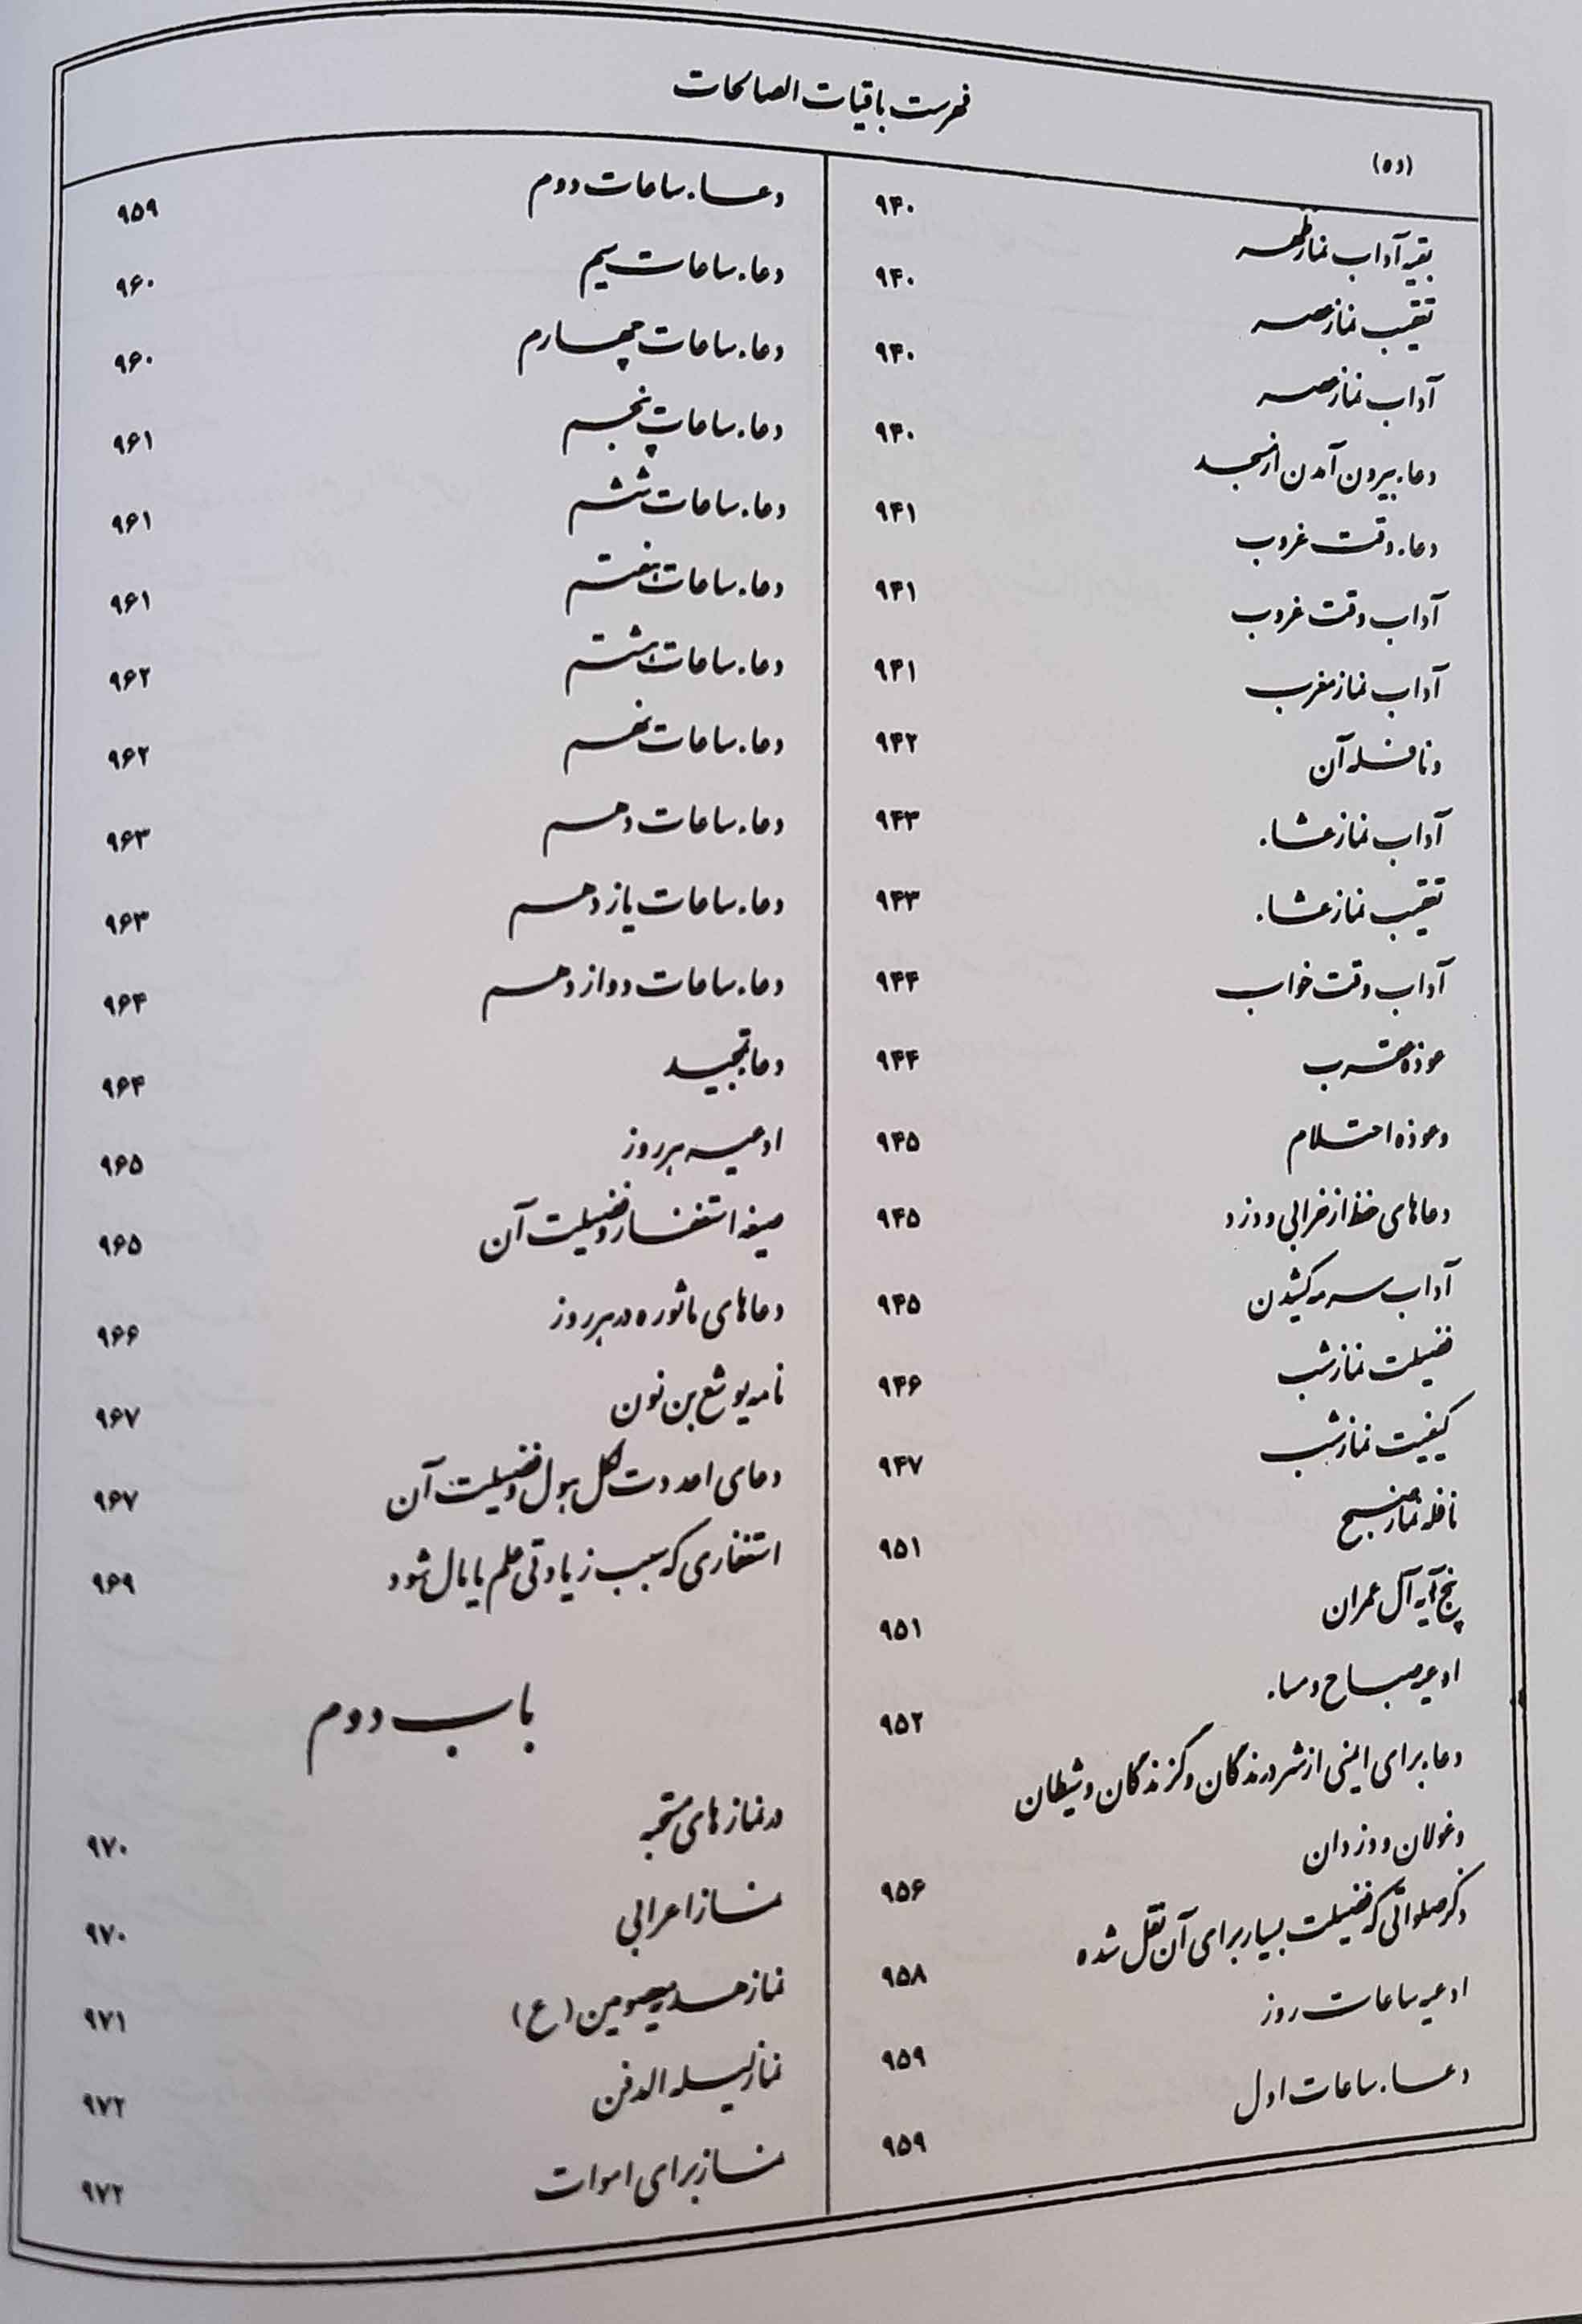 فهرست باقیات الصالحات
(ده)
بقیه آداب نماز ظهر ۹۴۰
تعقیب نماز عصر ۹۴۰
آداب نماز عصر ۹۴۰
دعاء بیرون آمدن از مسجد ۹۴۰
دعاء وقت غروب ۹۴۱
آداب وقت غروب ۹۴۱
آداب نماز مغرب ۹۴۱
و نافله آن ۹۴۲
آداب نماز عشاء ۹۴۳
تعقیب نماز عشاء ۹۴۳
آداب وقت خواب ۹۴۴
عوذه عقرب ۹۴۴
و عوذه احتلام ۹۴۵
دعاهای حفظ از خرابی و دزد ۹۴۵
آداب سرمه کشیدن ۹۴۵
فضیلت نماز شب ۹۴۶
کیفیت نماز شب ۹۴۷
نافله نماز صبح ۹۵۱
پنج آیه آل عمران ۹۵۱
ادعیه صباح و مساء ۹۵۲
دعاء برای ایمنی از شر درندگان و گزندگان و شیطان
و غولان و دزدان ۹۵۶
ذکر صلواتی که فضیلت بسیار برای آن نقل شده ۹۵۸
ادعیه ساعات روز ۹۵۹
دعاء ساعات اول ۹۵۹
دعاء ساعات دوم ۹۵۹
دعاء ساعات سیم ۹۶۰
دعاء ساعات چهارم ۹۶۰
دعاء ساعات پنجم ۹۶۱
دعاء ساعات ششم ۹۶۱
دعاء ساعات هفتم ۹۶۱
دعاء ساعات هشتم ۹۶۲
دعاء ساعات نهم ۹۶۲
دعاء ساعات دهم ۹۶۳
دعاء ساعات یازدهم ۹۶۳
دعاء ساعات دوازدهم ۹۶۴
دعا تمجید ۹۶۴
ادعیه هر روز ۹۶۵
صیغه استغفار و فضیلت آن ۹۶۵
دعاهای ماثوره در هر روز ۹۶۶
نامه یوشع بن نون ۹۶۷
دعای اعددت لکل هول و فضیلت آن ۹۶۷
استغفاری که سبب زیادتی علم یا مال شود ۹۶۹
باب دوم
در نمازهای مستحبه ۹۷۰
نماز اعرابی ۹۷۰
نماز هدیه معصومین (ع) ۹۷۱
نماز لیله الدفن ۹۷۲
نماز برای اموات ۹۷۲